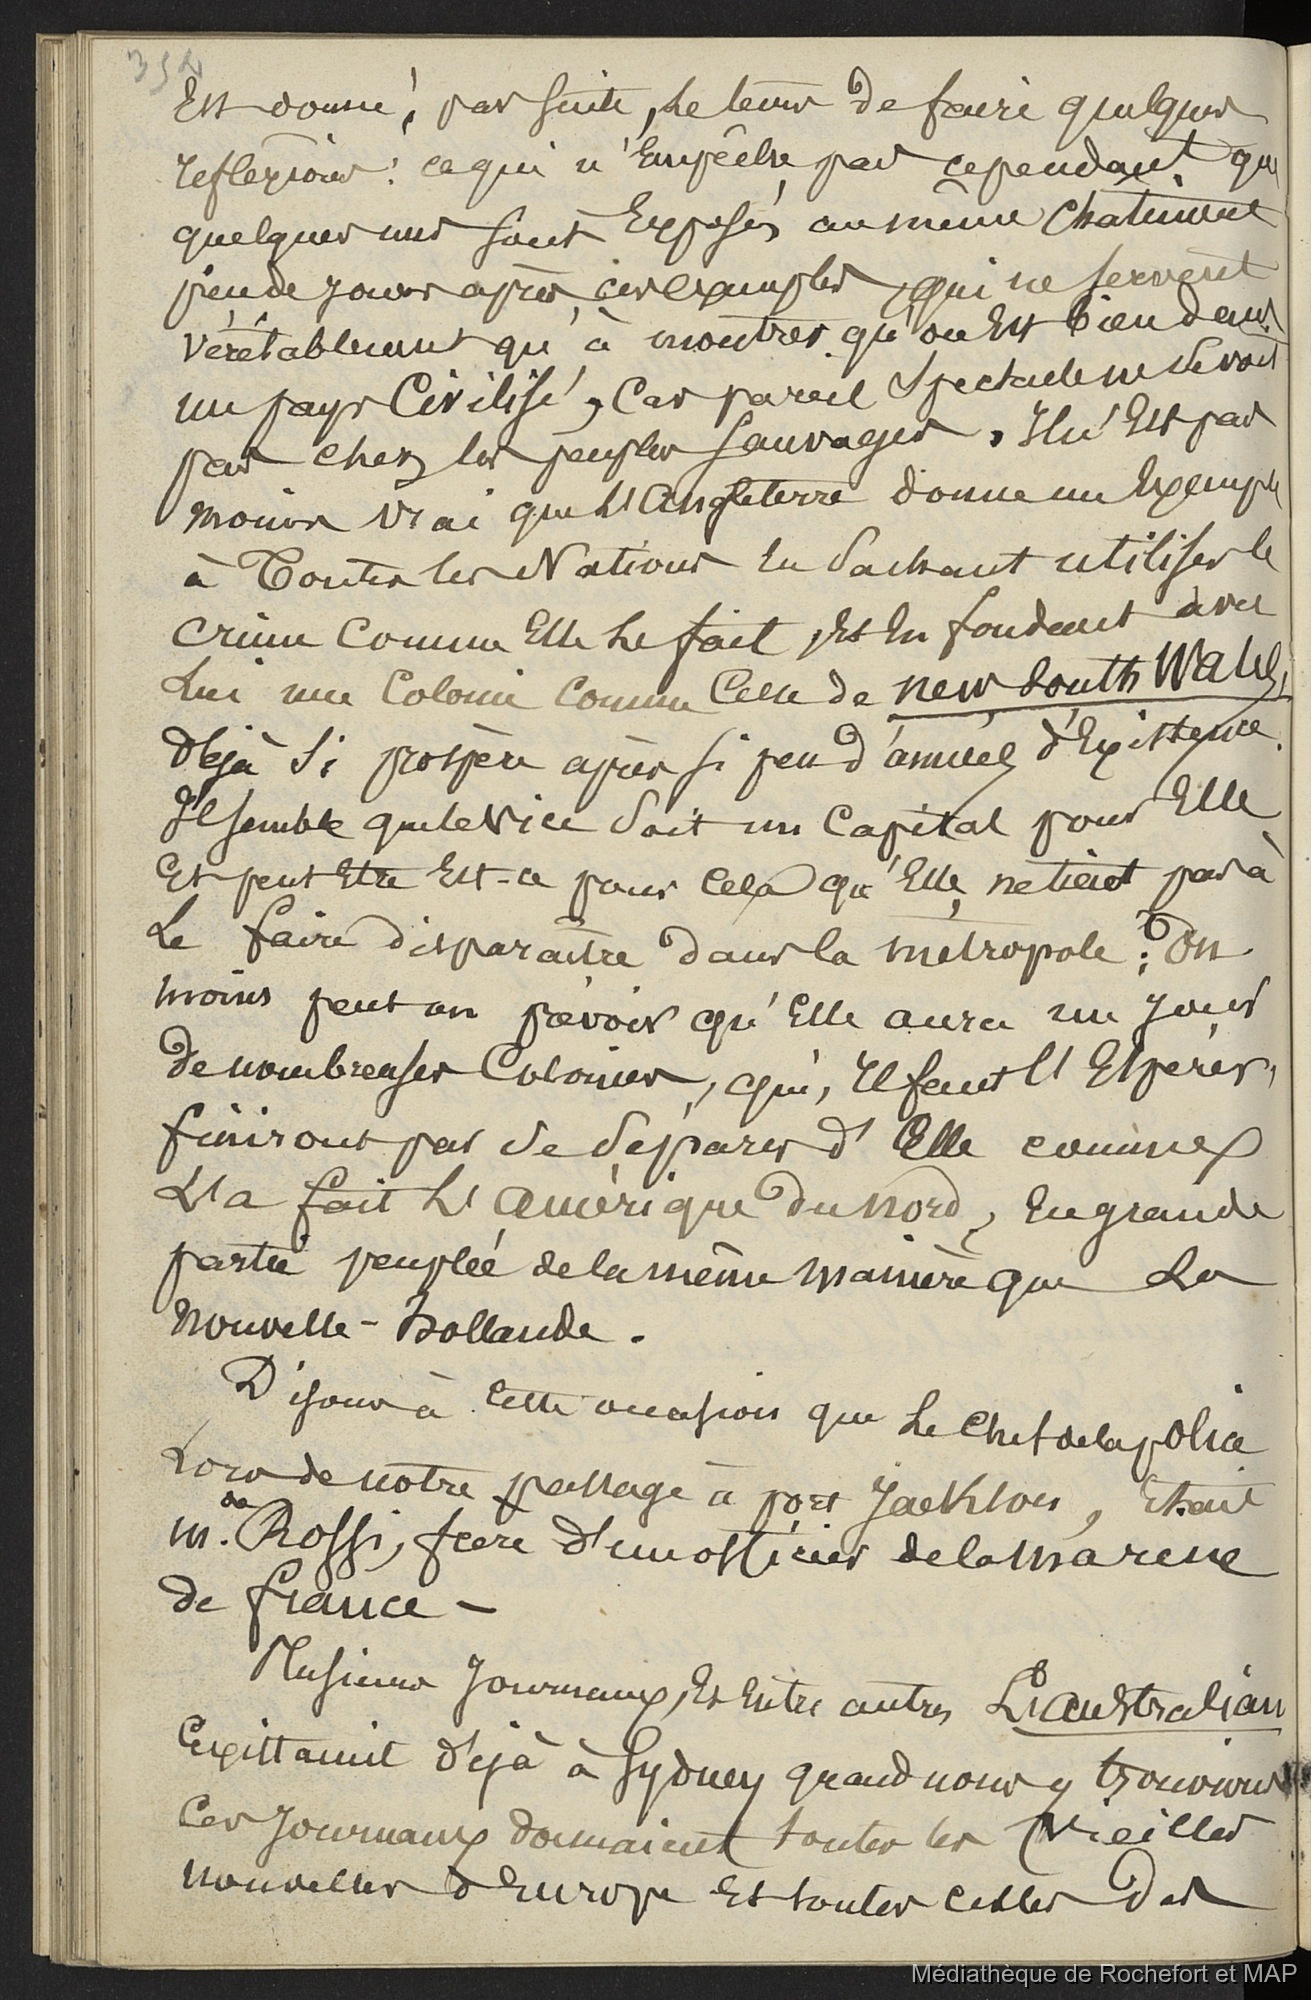 352
Est donné, par suite, le tems de faire quelques
reflexions : ce qui n'Empêche pas cependant que
quelques uns sont Exposés au même Chatiment
peu de jours après ces exemples, qui ne servent
véretablement qu'à montrer qu'on Est bien dans
un pays Civilisé, Car pareil Spectacle ne se voit
pas chez les peuples Sauvages. Il n'Est pas
moins vrai que L'Angleterre donne un Exemple
à Toutes les Nations En Sachant utiliser le
crime Comme Elle Le fait, Et En fondant avec
Lui une Colonie Comme Celle de new South Wales,
déjà Si prospère après si peu d'années d'Existence.
Il semble que le Vice Soit un Capital pour Elle
Et peut Etre Est-ce pour Cela qu'Elle ne tient pas à
Le faire disparaître dans la métropole ; Du
moins peut on prévoir qu'Elle aura un jour
de nombreuses Colonies, qui, Il faut l'Espérer,
finiront par Se Séparer d'Elle comme
L'a fait L'amérique du Nord, En grande
partie peuplée de la même manière que La
Nouvelle-hollande.
Disons à Cette occasion que Le Chef de la police
Lors de notre passage à port Jackson, Etait
m. de Rossi, frère d'un officier de la marine
de france -
Plusieurs Journaux, Et Entre autres L'australian
Existaient déjà à Sydney quand nous y trouvions
Ces journaux donnaient toutes les Vieilles
nouvelles d'Europe Et toutes celles des
Médiathèque de Rochefort et MAP